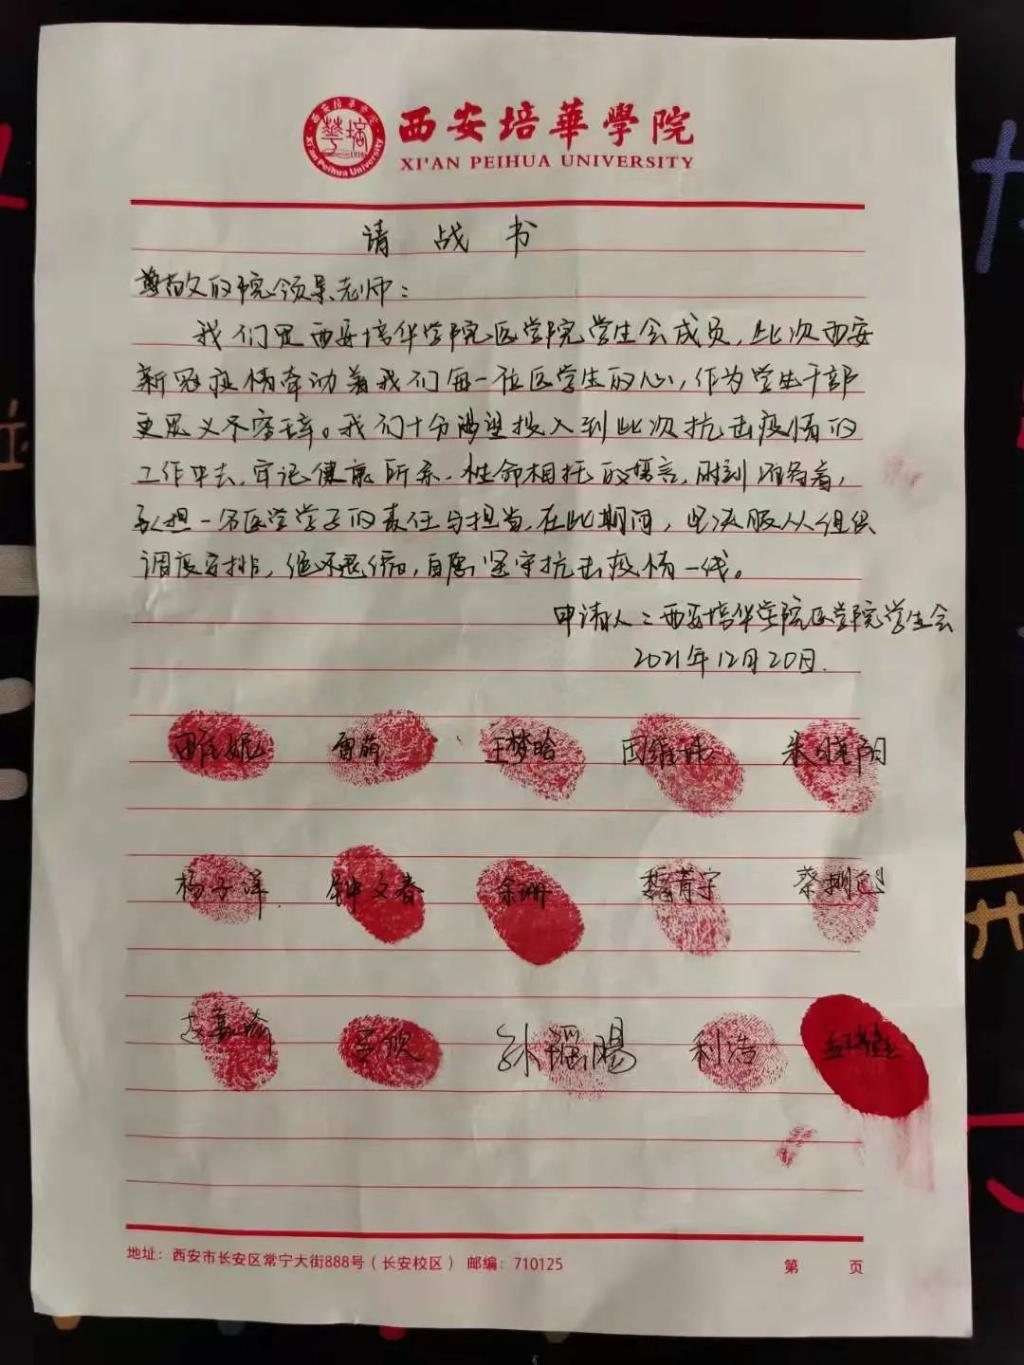 西安培華學院
XI'AN PEIHUA UNIVERSITY
请战书
尊敬的院领导老师：
我们是西安培华学院医学院学生会成员，此次西安
新冠疫情牵动着我们每一位医学生的心，作为学生干部
更是义不容辞。我们十分渴望投入到此次抗击疫情的
工作中去，牢记健康所系，性命相托的誓言，时刻准备着，
承担一名医学学子的责任与担当，在此期间，坚决服从组织
调度安排，绝不退缩，自愿坚守抗击疫情一线。
申请人：西安培华学院医学院学生会
2021年12月20日.
雷萌 王梦晗 朱晓阳
杨子洋. 钟文春 余珊
利浩
地址：西安市长安区常宁大街888号（长安校区） 邮编：710125
第 页